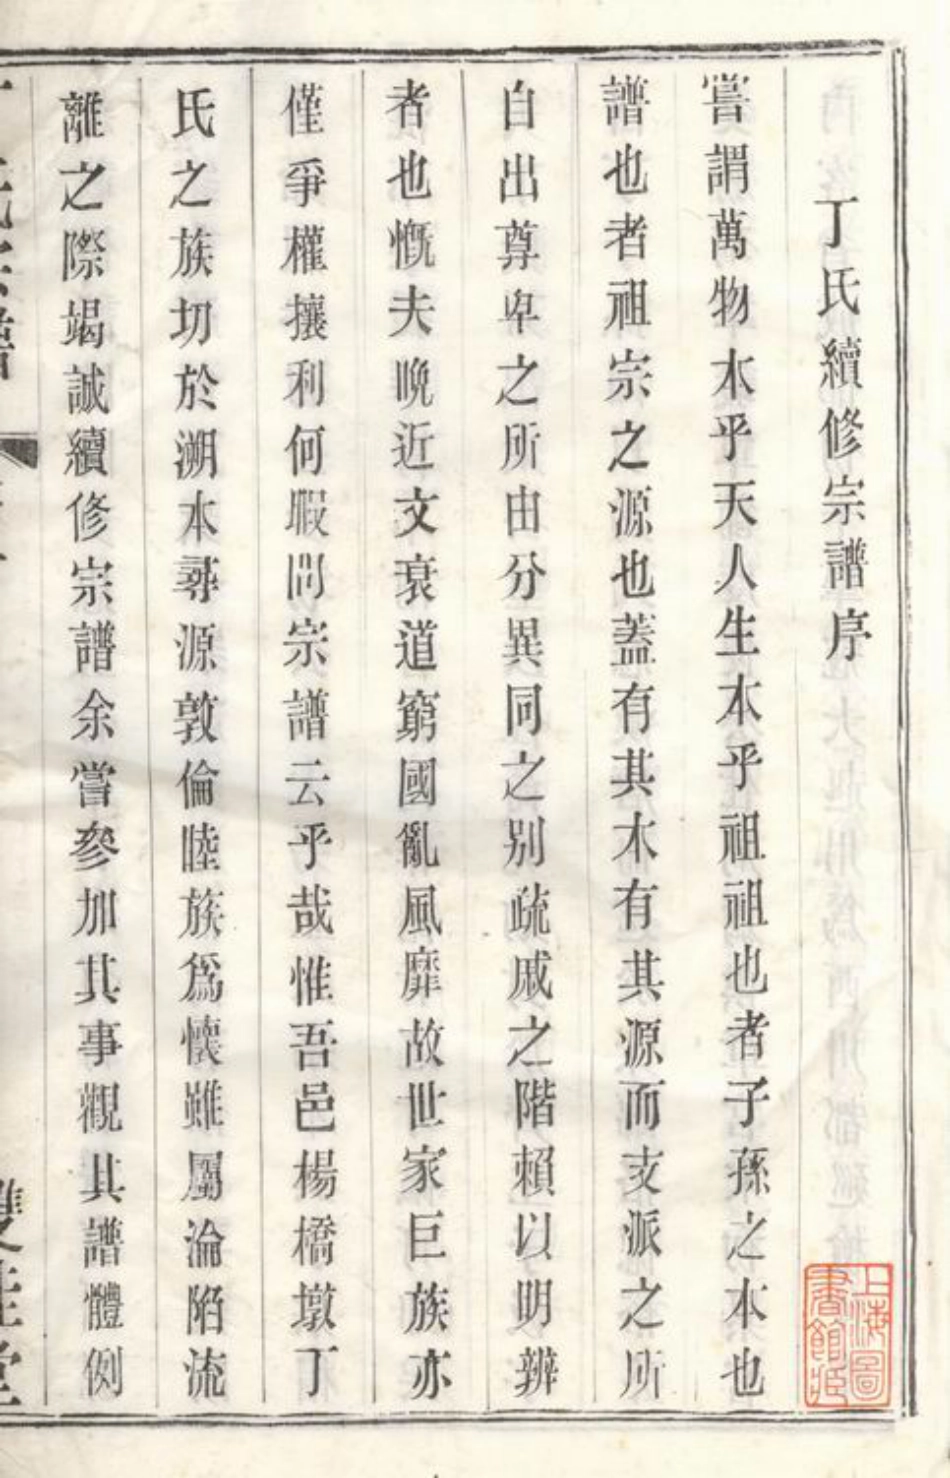 丁氏續修宗譜序
嘗謂萬物本乎天人生本乎祖祖也者子孫之本也
譜也者祖宗之源也蓋有其木有其源而支派之所
自出尊卑之所由分異同之別疏戚之階賴以明辨
者也慨夫晩近文衰道窮國亂風靡故世家巨族亦
僅爭權攘利何暇問宗譜云乎哉惟吾邑楊橋墩丁
氏之族切於溯本尋源敦倫睦族爲懷雖屬淪陷流
離之際竭誠續修宗譜余嘗參加其事觀其譜體例
氏宗譜
雙桂堂
上海圖書館藏